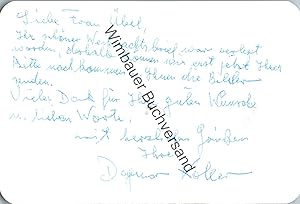 Liebe Frau Übel.
Ihr schöner Weihnachtsbrief war verlegt
worden, deshalb können wir erst jetzt Ihrer
Bitte nachkommen Ihnen die Bilder
senden.
Vielen Dank für Ihre guten Wünsche
u. lieben Worte.
mit herzlichen Grüßen
Ihre
Dagmar Koller
Wimbauer Buchversand